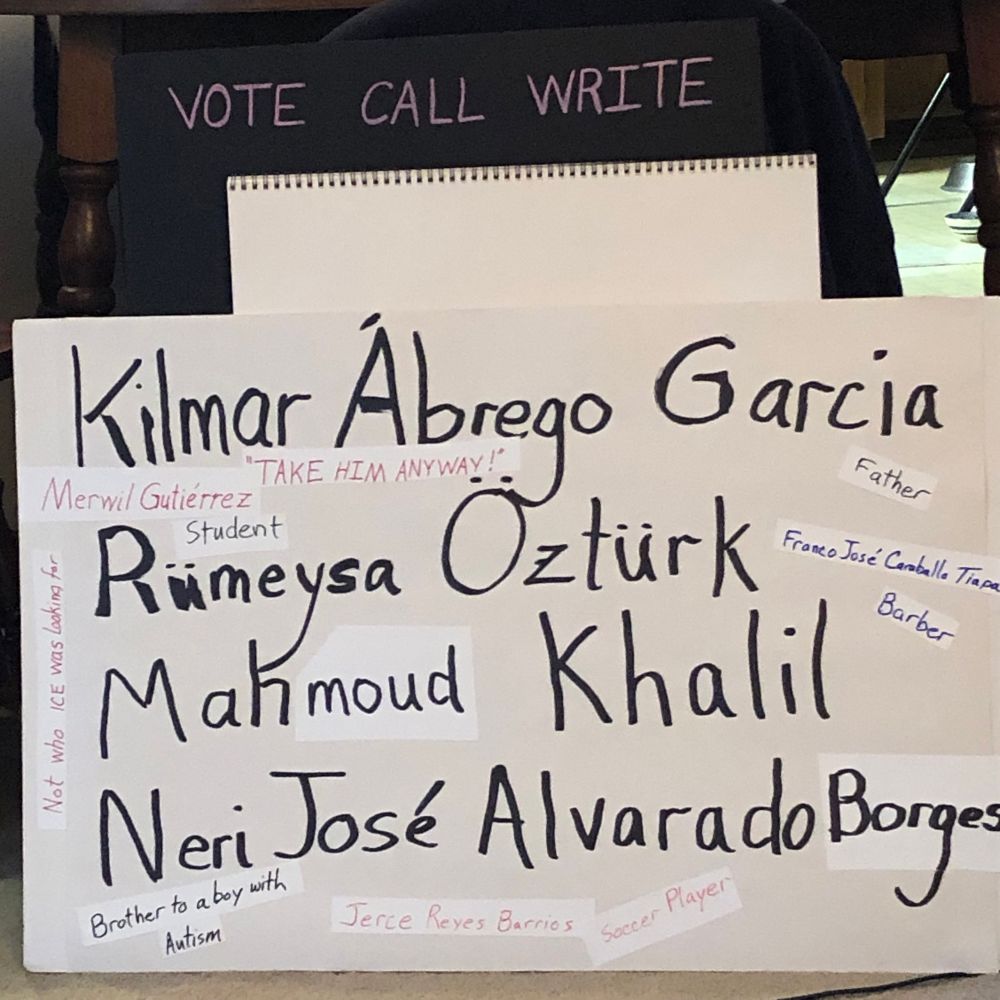 VOTE CALL WRITE
Kilmar Ábrego Garcia
"TAKE HIM ANYWAY!"
Father
Merwil Gutiérrez
Student
Rümeysa Öztürk
Franco José Caraballo Tiapa
Barber
Not who ICE was looking for
Mahmoud Khalil
Neri José Alvarado Borges
Brother to a boy with
Autism
Jerce Reyes Barrios
Soccer Player